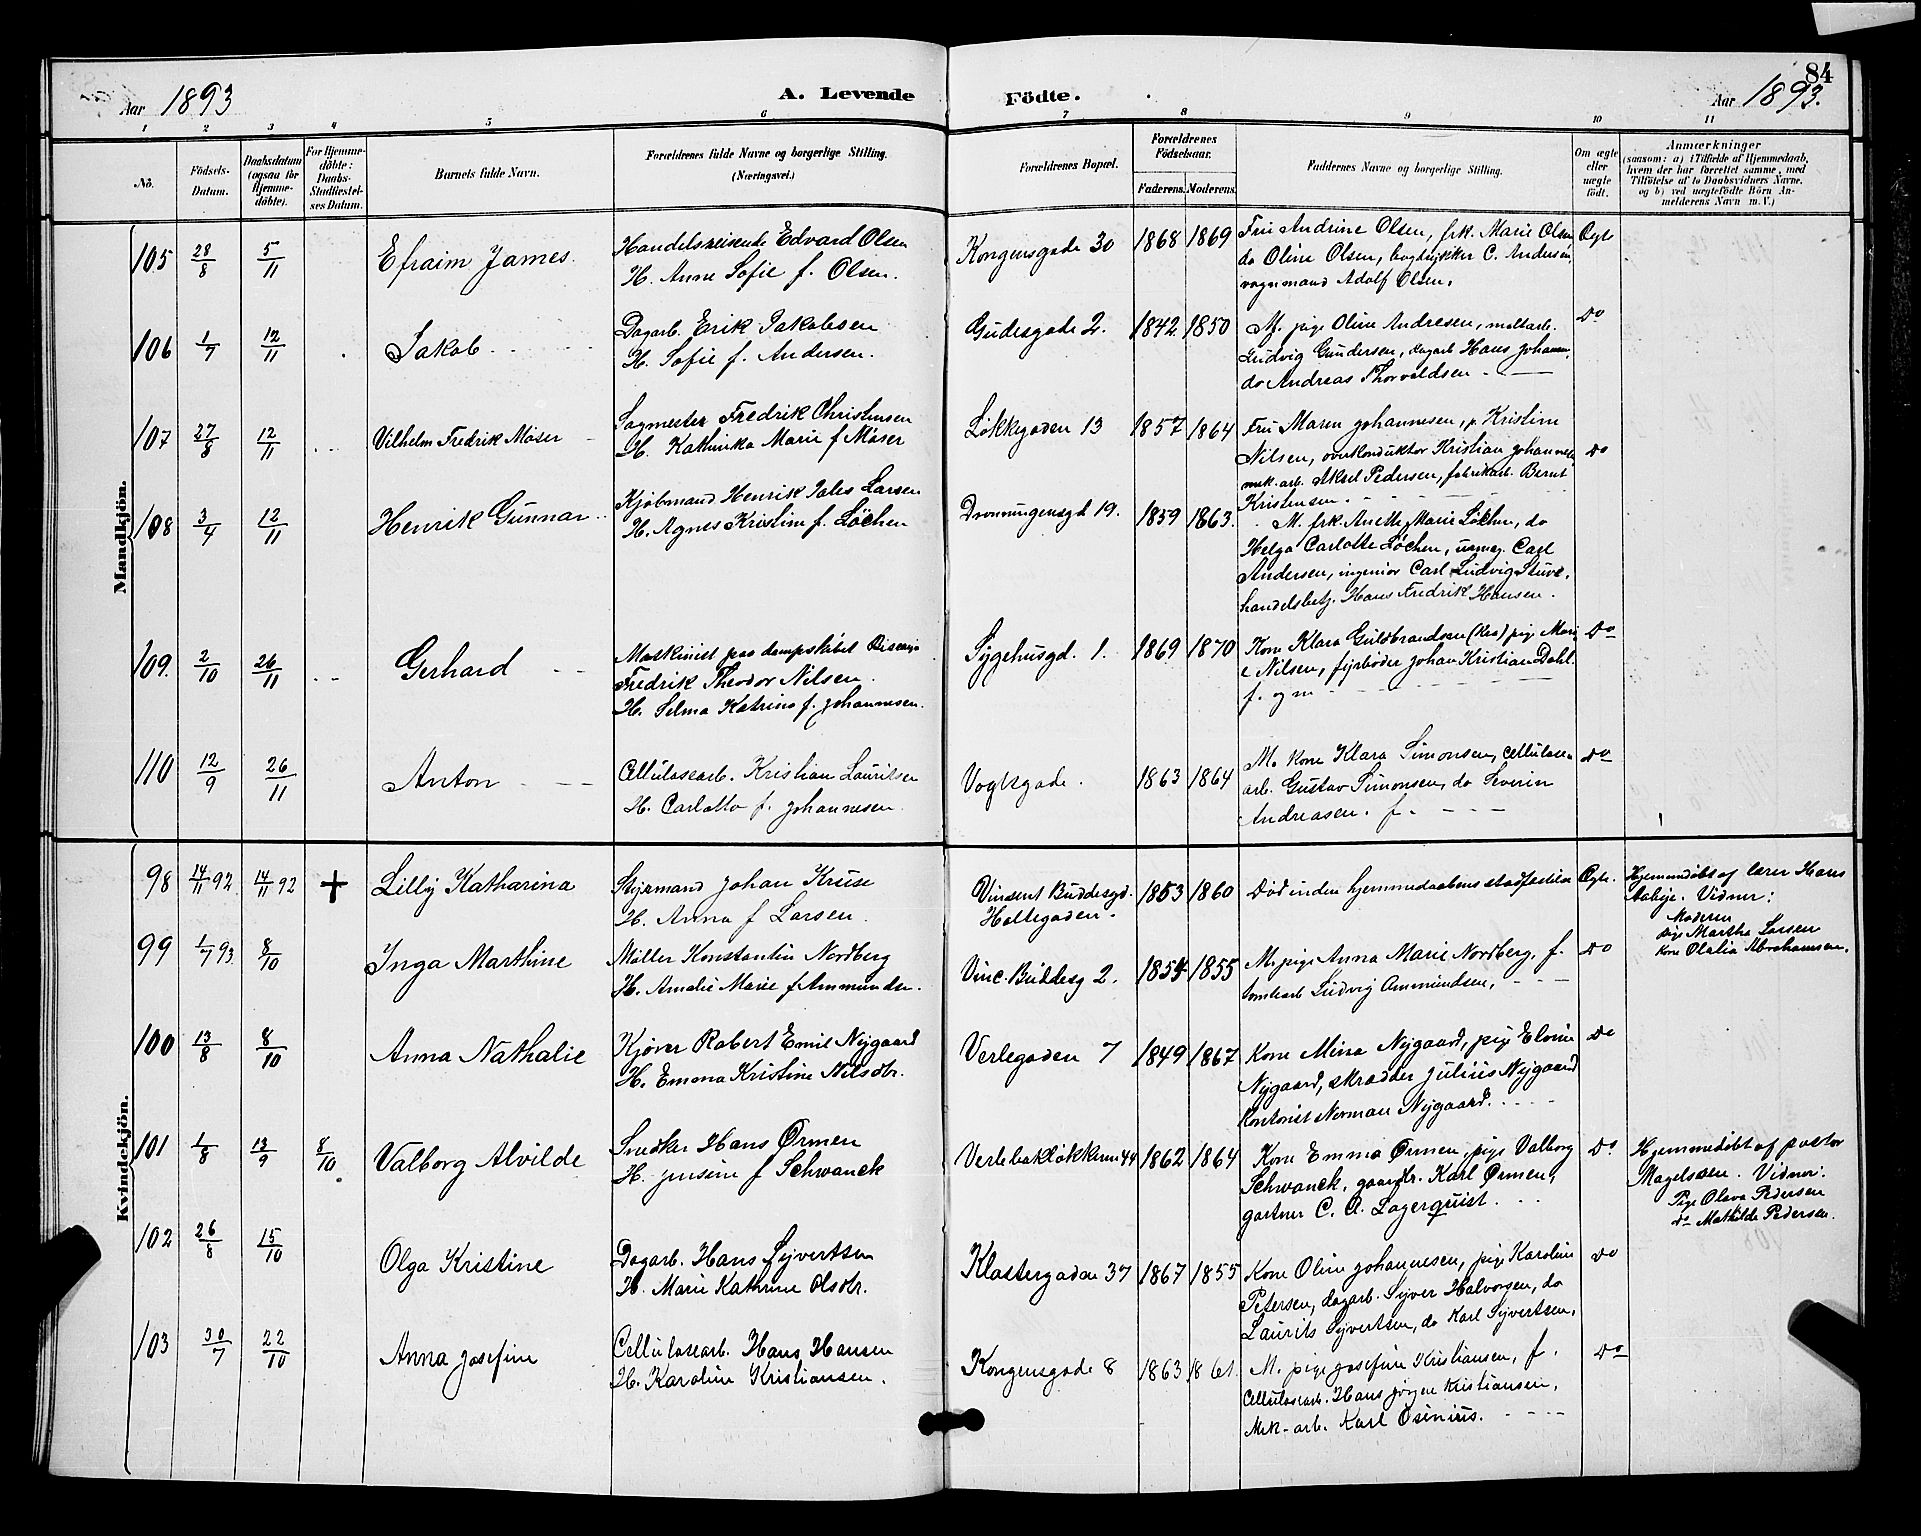 84
Aar 1893 A. Levende Födte. Aar 1893.
1 2 3 4 5 6 7 8 9 10 11
No.
Födsels-
Datum.
Daabsdatum
(ogsaa for
Hjemme-
döbte).
For Hjemme-
döbte:
Daabs-
Stadfæstel-
ses Datum.
Barnets fulde Navn.
Forældrenes fulde Navne og borgerlige Stilling.
(Næringsvei.)
Forældrenes Bopæl.
Forældrenes
Födselsaar.
Faderens. Moderens.
Faddernes Navne og borgerlige Stilling.
Om ægte
eller
uægte
födt.
Anmærkninger
(saasom: a) i Tilfælde af Hjemmedaab,
hvem der har forrettet samme, med
Tilföielse af to Daabsvidners Navne,
og b) ved uægtefödte Börn An-
melderens Navn m. V.)
Mandkjön.
105 28/8 5/11 Efraim James.
Handelsreisende Edvard Olsen
H. Anne Sofie f. Olsen.
Kongensgade 30 1868 1869
Fru Andrine Olsen, frk. Marie Olsen,
do Oline Olsen, bogtrykker C. Andersen,
vognmand Adolf Olsen.
Ægte
106 1/7 12/11 Jakob
Dagarb. Erik Jakobsen
H. Sofie f. Andersen.
Gudesgade 2. 1842 1850
M. pige Oline Andresen, maltarb.
Ludvig Gundersen, dagarb Hans Johannn.
do Andreas Thorvaldsen
Do
107 27/8 12/11 Vilhelm Fredrik Møser
Sagmester Fredrik Christensen
H. Kathinka Marie f Møser
Løkkegaden 13 1857 1864
Fru Maren Johannesen, p. Kristine
Nilsen, overkonduktor Kristian Johannes
mek. arb. Aksel Pedersen, fabrikarb. Bernt
Kristensen.
Do
108 3/4 12/11 Henrik Gunnar
Kjøbmand Henrik Jales Larsen
H. Agnes Kristine f. Løchen
Dronningensgd 19. 1859 1863.
M. frk. Anette Marie Løchen, do
Helga Carlotte Løchen, urmag. Carl
Andersen, ingeniør Carl Ludvig Stuve,
handelsbetj. Hans Fredrik Hansen.
109. 2/10 26/11 Gerhard
Maskinist paa dampskibet
Fredrik Theodor Nilsen.
H. Selma Katrine f. Johannesen.
Sygehusgd. 1. 1869 1870
Kone Klara Guldbrandsen (Kra) pige Mari
e Nilsen, fyrbøder Johan Kristian Dahl.
f. og m
Do
110 12/9 26/11 Anton
Cellulosearb. Kristian Lauritsen
H. Carlotta f. Johannesen.
Vogtsgade. 1863 1864
M. kone Klara Simonsen, Cellulose-
arb. Gustav Simonsen, do Severin
Andreasen. f.
Do
Kvindekjön.
98 14/11 92. 14/11 92 + Lilly Katharina
Styrmand Johan Kruse
H. Anna f Larsen.
Vinsent Buddesgd.
Holtegaden. 1853 1860
Død inden hjemmedaabens stadfæstelse
Ægte.
Hjemmedøbt af lærer Hans
Aabye. Vidner:
Moderen
pige Martha Larsen
kone Olalia Abrahamsen.
99 1/7 93. 8/10 Inga Marthine
Møller Konstantin Nordberg
H. Amalie Marie f Ammundsen.
Vinc. Buddesg 2. 1854 1855
M. pige Anna Marie Nordberg, f.
tomtearb Ludvig Ammundsen,
Do
100 13/8 8/10 Anna Nathalie
Kjører Robert Emil Nygaard
H. Emma Kristine Nilsdtr.
Verlegaden 7 1849 1867
Kone Mina Nygaard, pige Elvine
Nygaard, skrædder Julius Nygaard
Kontorist Norman Nygaard.
Do
101 1/8 13/9 8/10 Valborg Alvilde
Snedker Hans Ørmen
H. Jensine f Schwanck
Verlebakløkken 44 1862 1864
Kone Emma Ørmen, pige Valborg
Schwanck, gaardbr. Karl Ørmen,
gartner C. A. Lagerquist.
Do
Hjemmedøbt af pastor
Magelssen. Vidner:
Pige Olava Pedersen
do Mathilde Pedersen.
102 26/8 15/10 Olga Kristine
Dagarb. Hans Syvertsen
H. Marie Kathrine Olsdtr.
Klostergaden 37 1867 1855
Kone Oline Johannesen, pige Karoline
Petersen, dagarb. Syver Halvorsen, do
Laurits Syvertsen, do Karl Syvertsen.
Do
103 30/7 22/10 Anna Josefine
Cellulosearb. Hans Hansen
H. Karoline Kristiansen.
Kongensgade 8 1863 1861.
M. pige Josefine Kristiansen, f.
Cellulosearb. Hans Jørgen Kristiansen,
Mek-arb. Karl Osenius.
Do